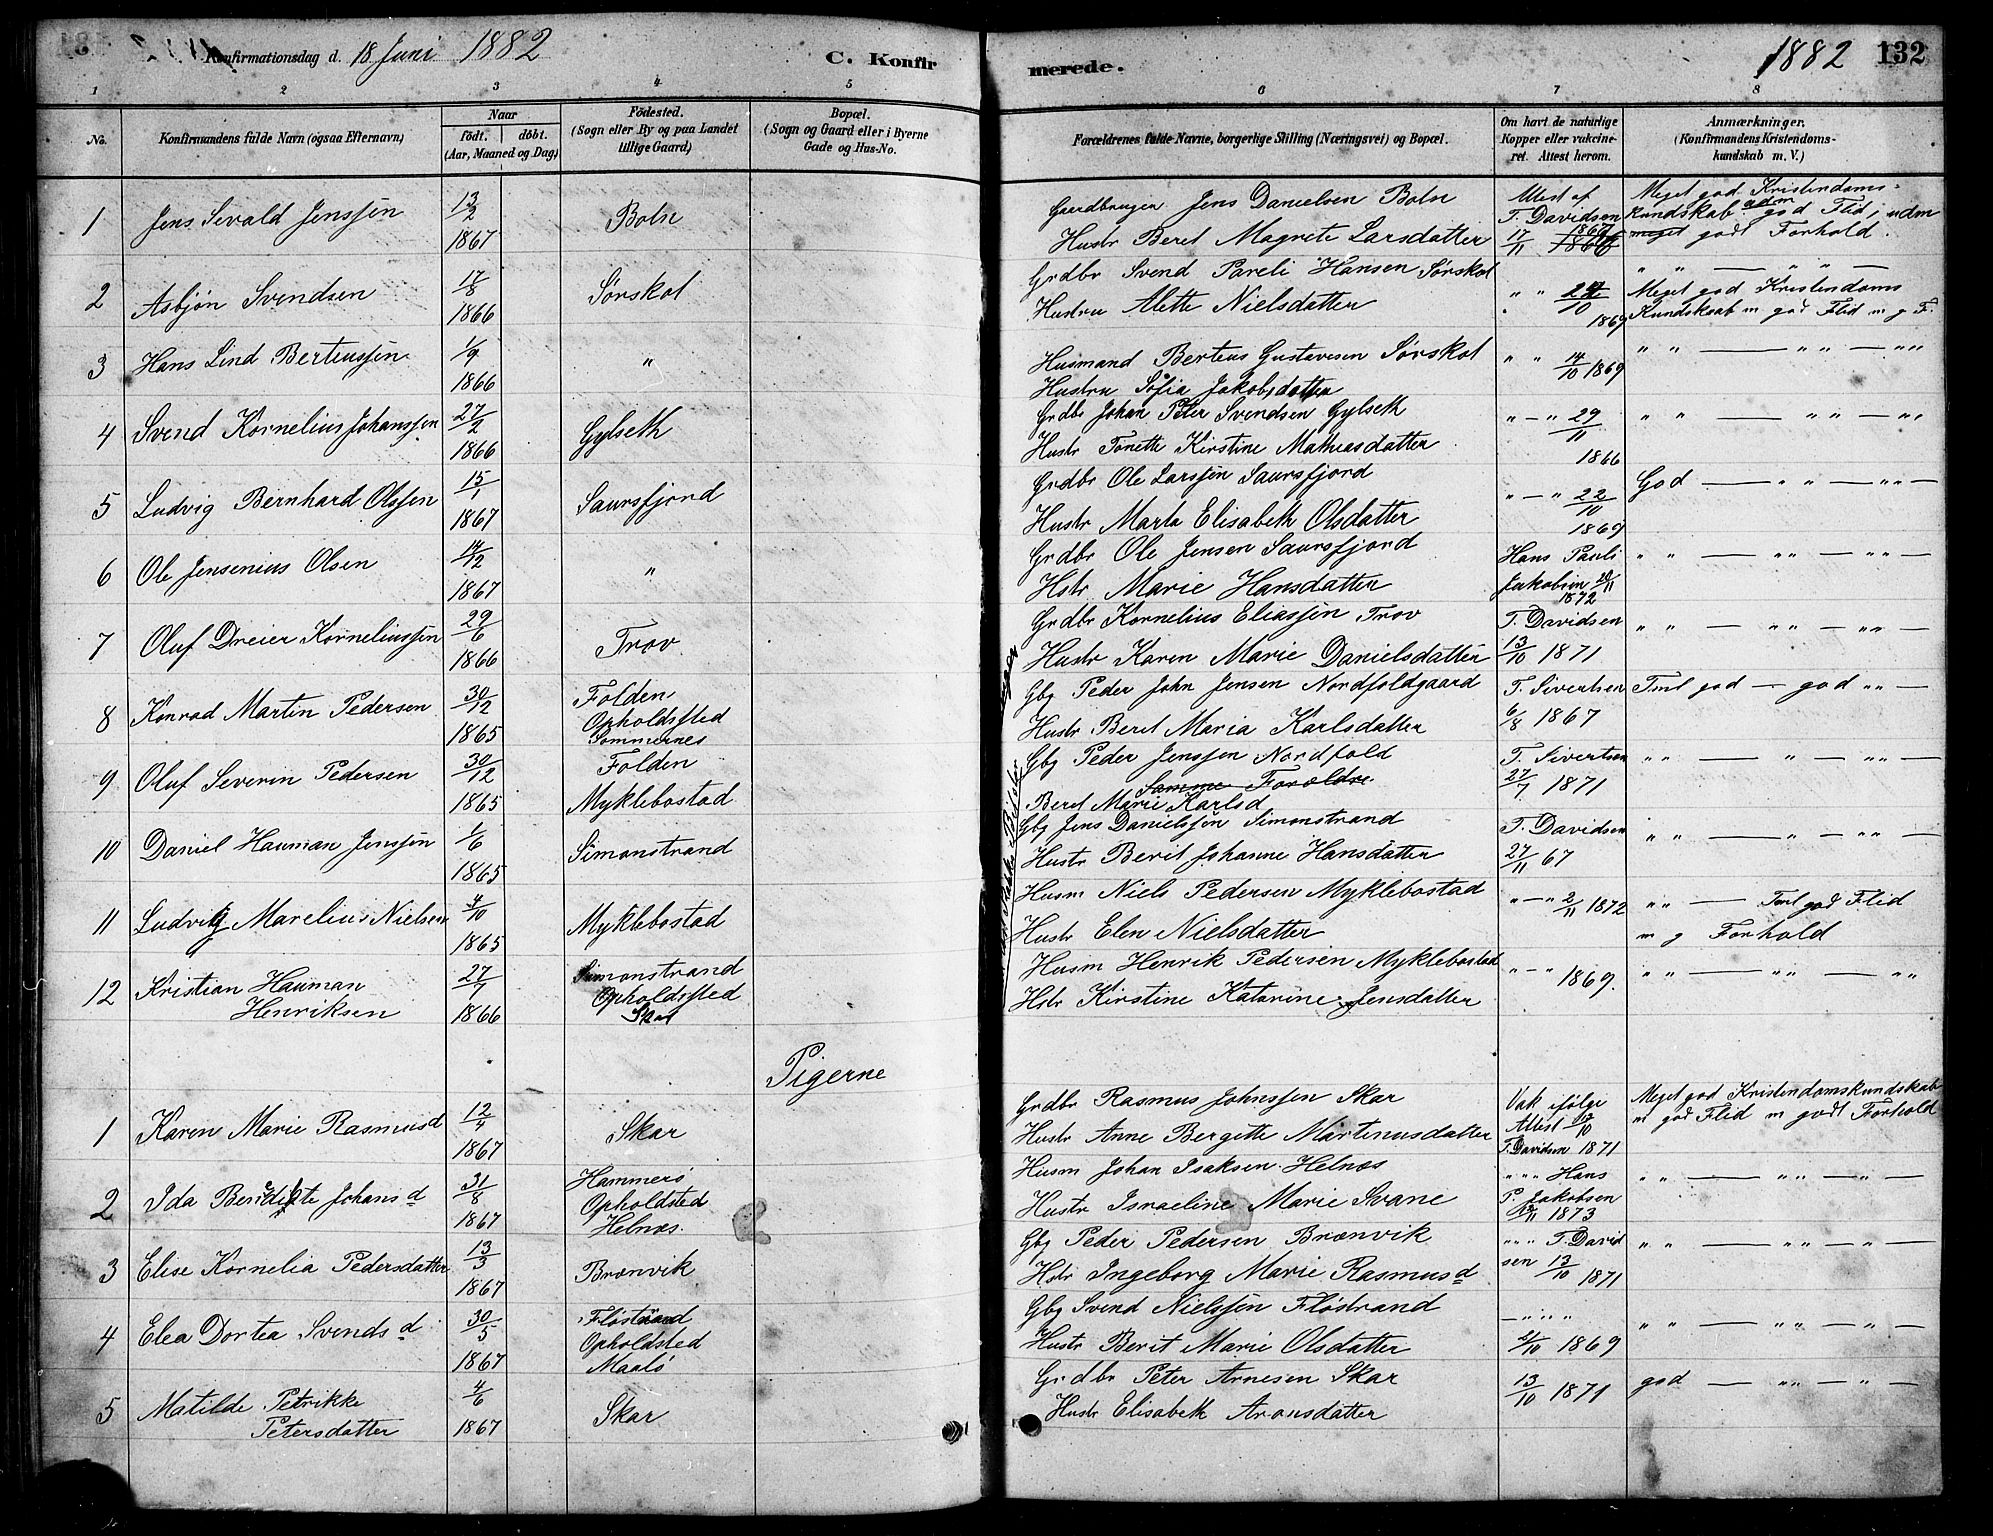 Konfirmationsdag d. 18 Juni 1882
C. Konfir
merede.
1882 132
1 2 3 4 5 6 7 8
No.
Konfirmandens fulde Navn (ogsaa Efternavn)
Naar
født. døbt.
(Aar, Maaned og Dag)
Fødested.
(Sogn eller By og paa Landet
tillige Gaard)
Bopæl.
(Sogn og Gaard eller i Byerne
Gade og Hus-No.
Forældrenes fulde Navne, borgerlige Stilling (Næringsvei) og Bopæl.
Om havt de naturlige
Kopper eller vakcine-
ret. Attest herom.
Anmærkninger,
(Konfirmandens Kristendoms-
kundskab m. V.)
1 Jens Sevald Jenssen 13/2 1867 Boln
Gaardbruger Jens Danielsen Boln
Hustr Beret Magrete Larsdatter
Attest af
T. Davidsen
17/11 1867
Meget god Kristendoms-
Kundskab udm god Flid, udm
meget godt Forhold.
2 Asbjøn Svendsen 17/8 1866 Sørskot
Grdbr Svend Pareli Hansen Sørskot
Hustru Alette Nielsdatter
" " 10 1869
" " — " " —
Meget god Kristendoms
Kundskab m god Flid m g F.
3 Hans Lind Berteussen 1/9 1866 "
Husmand Berteus Gustavesen Sørskot
Hustru Sofia Jakobsdatter
" " 14/10 1869
" " — " " — " "
4 Svend Kornelius Johanssen 27/2 1866 Gylseth
Grdbr Johan Peter Svendsen Gylseth
Hustr Tonette Kirstine Mathiasdatter
" — " 29/11 1866
" " — " " — " "
5 Ludvig Bernhard Olssen 15/1 1867 Saursfjord
Grdbr Ole Larssen Saursfjord
Hustr Marta Elisabeth Olsdatter
" — " 22/10 1869
God — " " — " " —
6 Ole Jensenius Olsen 14/12 1867 "
Grdbr Ole Jensen Saursfjord
Hstr Marie Hansdatter
Hans Pauli
Jakobsen 20/11
1872
" " — " " — " " —
7 Oluf Dreier Korneliussen 29/6 1866 Trov
Grdbr Kornelius Eliassen Trov
Hustr Karen Marie Danielsdatter
T. Davidsen
13/10 1871
" " — " " — " " —
8 Konrad Martin Pedersen 30/12 1865 Folden
Opholdssted
Sommernes
Gbg Peder John Jensen Nordfoldgaard
Hustr Beret Maria Karlsdatter
T. Sivertsen
6/8 1867
Tml god — god " " —
9 Oluf Severin Pedersen 30/12 1865 Folden
Myklebostad
Gbg Peder Jenssen Nordfold
Samme Forældre.
Beret Marie Karlsd
T. Sivertsen
27/7 1871
" " — " — " " —
10 Daniel Hauman Jenssen 1/6 1865 Simonstrand
Gbg Jens Danielssen Simonstrand
Hustr Berit Johanne Hansdatter
T. Davidsen
27/11 67
" " — " — " " —
11 Ludvig Marelius Nielsen 4/10 1865 Myklebostad
Husm Niels Pedersen Myklebostad
Hustr Elen Nielsdatter
" — " 2/11 1872
" " — Tml god Flid
m g Forhold
12 Kristian Hauman
Henriksen 27/7 1866 Simonstrand
Opholdssted
Skar
Husm Henrik Pedersen Myklebostad
Hstr Kirstine Katarine Jensdatter
" — " 1869.
" " — " " — " "
Pigerne
1 Karen Marie Rasmusd 12/4 1867 Skar
Grdbr Rasmus Johnssen Skar
Hustr Anne Bergitte Martinusdatter
Vak ifølge
Attest 13/10
T. Davidsen 1871
Meget god Kristendomskundskab
m god Flid m godt Forhold
2 Ida Benedikte Johansd 31/8 1867 Hammerø
Opholdsted
Helnæs.
Husm Johan Isaksen Helnæs
Hustr Israeline Marie Svane
" " " Hans
P. Jakobsen
1873
" " — " " — " —
3 Elise Kornelia Pedersdatter 13/3 1867 Brænvik
Gbg Peder Pedersen Brænvik
Hstr Ingeborg Marie Rasmusd
" " " T. David
sen 13/10 1871
" " — " " — " —
4 Elea Dortea Svendsd 30/5 1867 Fløstrand
Opholdsted
Maalø
Gbg Svend Nielssen Fløstrand
Hustr Berit Marie Olsdatter
— " " "
21/10 1869
" " — " " — " —
5 Matilde Petrikke
Petersdatter 4/6 1867 Skar
Grdbr Peter Arnesen Skar
Hustr Elisabeth Aronsdatter
13/10 1871
god — " " — " —